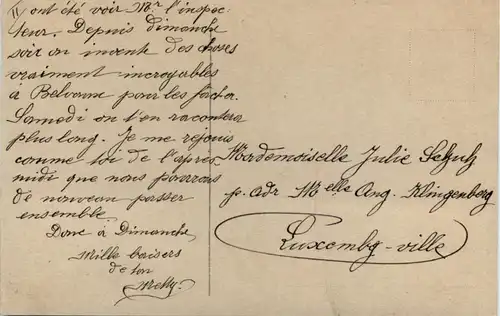 Il ont été voir Mr. l'inspec-
teur. Depuis dimanche
soir on invente des choses
vraiment incroyables
à Belvaux pour les fâcher.
Samedi on t'en racontera
plus long. Je me réjouis
comme toi de l'après
midi que nous pourrons
de nouveau passer
ensemble.
Donc à Dimanche,
Mille baisers
de ton
Melly.
Mademoiselle Julie Schulz
p. Adr Melle Ang. Klingenberg
Luxembg-ville